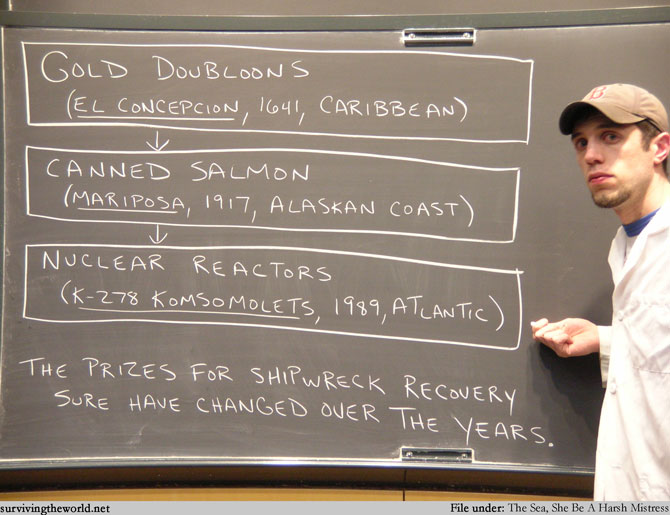 GOLD DOUBLOONS
(EL CONCEPCION, 1641, CARIBBEAN)
CANNED SALMON
(MARIPOSA, 1917, ALASKAN COAST)
NUCLEAR REACTORS
(K-278 KOMSOMOLETS, 1989, ATLANTIC)
THE PRIZES FOR SHIPWRECK RECOVERY
SURE HAVE CHANGED OVER THE YEARS.
B
survivingtheworld.net
File under: The Sea, She Be A Harsh Mistress